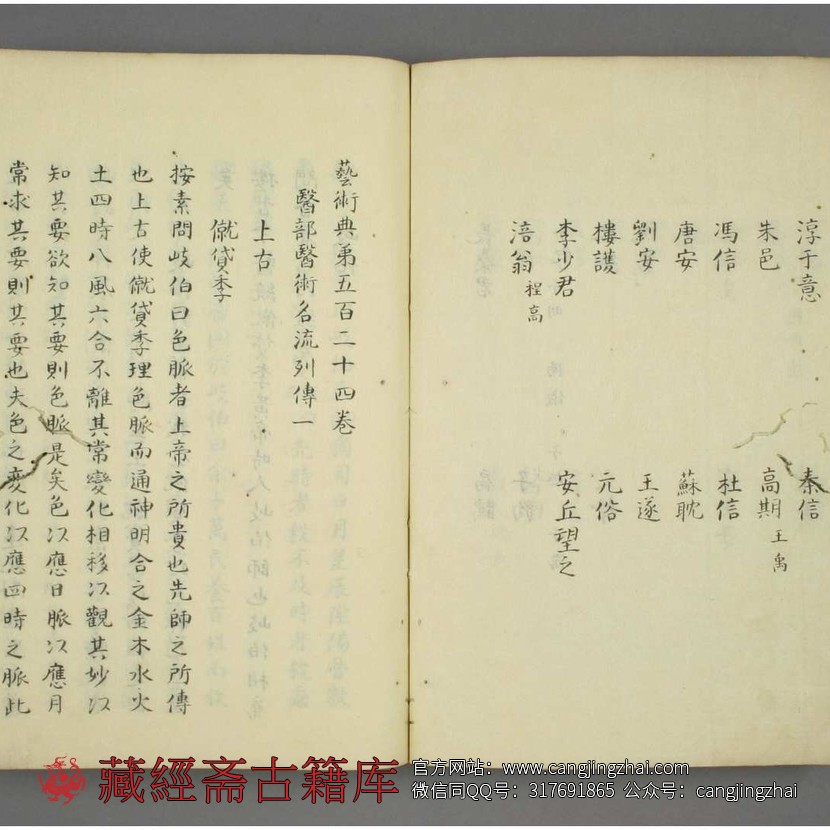 淳于意 秦信
朱邑 高期 王禹
馮信 杜信
唐安 蘇耽
劉安 王遂
樓護 元俗
李少君 安丘望之
涪翁 程高
藝術典第五百二十四卷
醫部醫術名流列傳一
上古
僦貸季
按素問岐伯曰色脈者上帝之所貴也先師之所傳
也上古使僦貸季理色脈而通神明合之金木水火
土四時八風六合不離其常變化相移以觀其妙以
知其要欲知其要則色脈是矣色以應日脈以應月
常求其要則其要也夫色之變化以應四時之脈此
藏經斋古籍库
官方网站：www.cangjingzhai.com
微信同QQ号：317691865 公众号：cangjingzhai